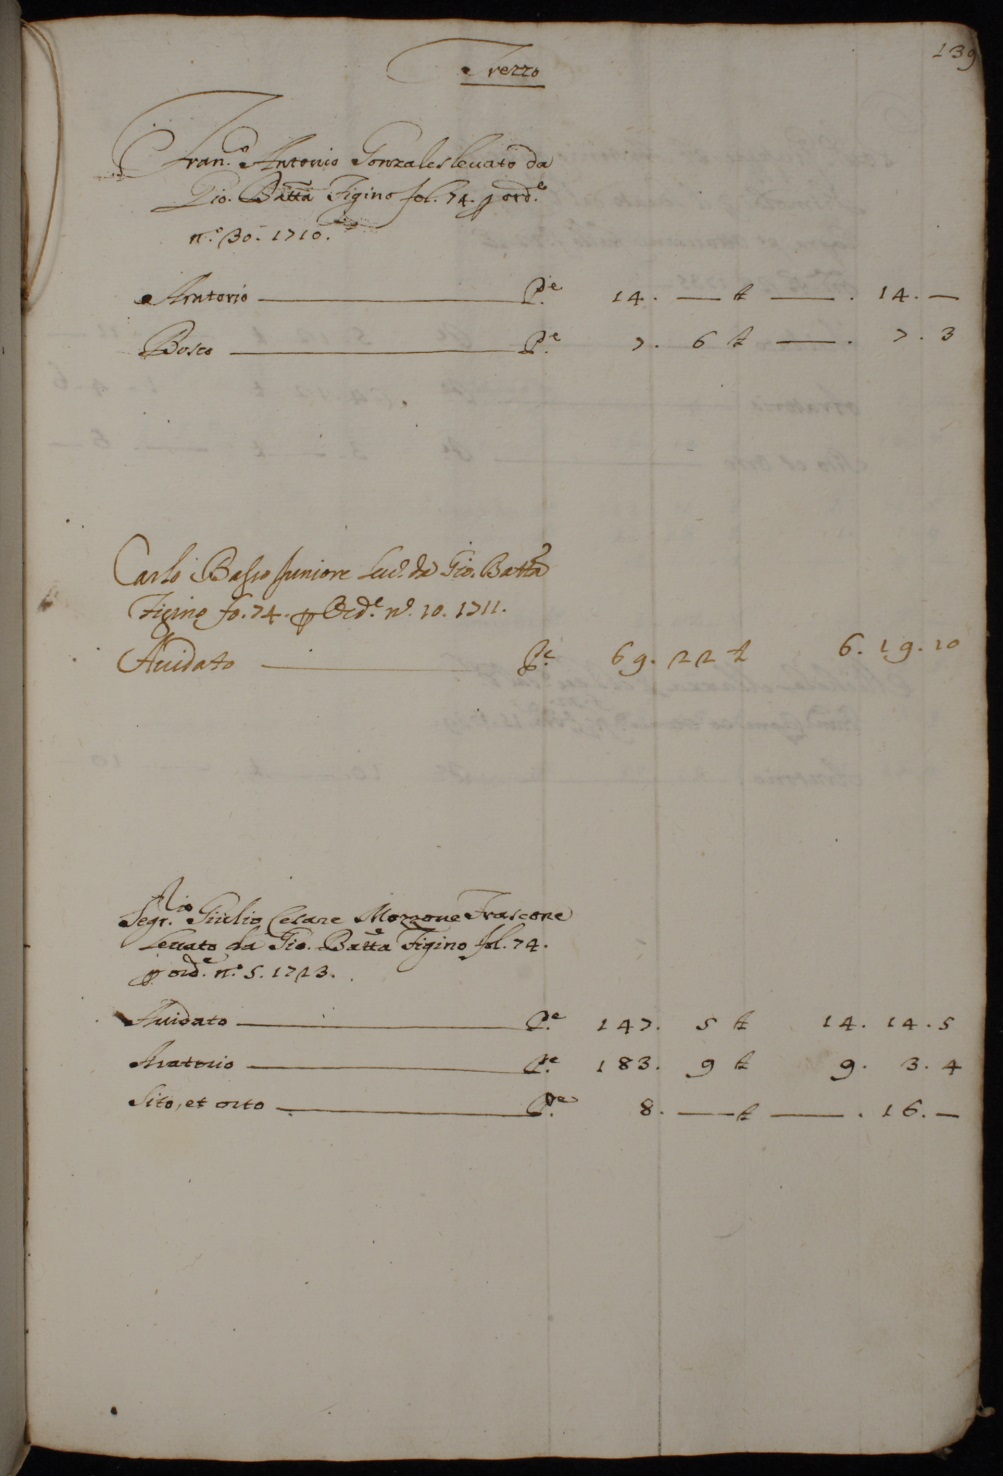 139
Trezzo
Fran.co Antonio Gonzales levato da
Gio. Batta Figino fol. 74. p ord.e
n.o 30. 1710.
Aratorio P.e 14. — £ — . 14. —
Bosco P.e 7. 6 £ — . 7. 3
Carlo Basso Juniore Lev.o da Gio. Batta
Figino fo. 74. p Ord.e n.o 10. 1711.
Avidato P.e 69. 22 £ 6. 19. 10
Segr.rio Giulio Cesare Morrone Frascone
Levato da Gio. Batta Figino fol. 74.
p ord.e n.o 5. 1723.
Avidato P.e 147. 5 £ 14. 14. 5
Aratorio P.e 183. 9 £ 9. 3. 4
Sito, et orto P.e 8. — £ — . 16. —